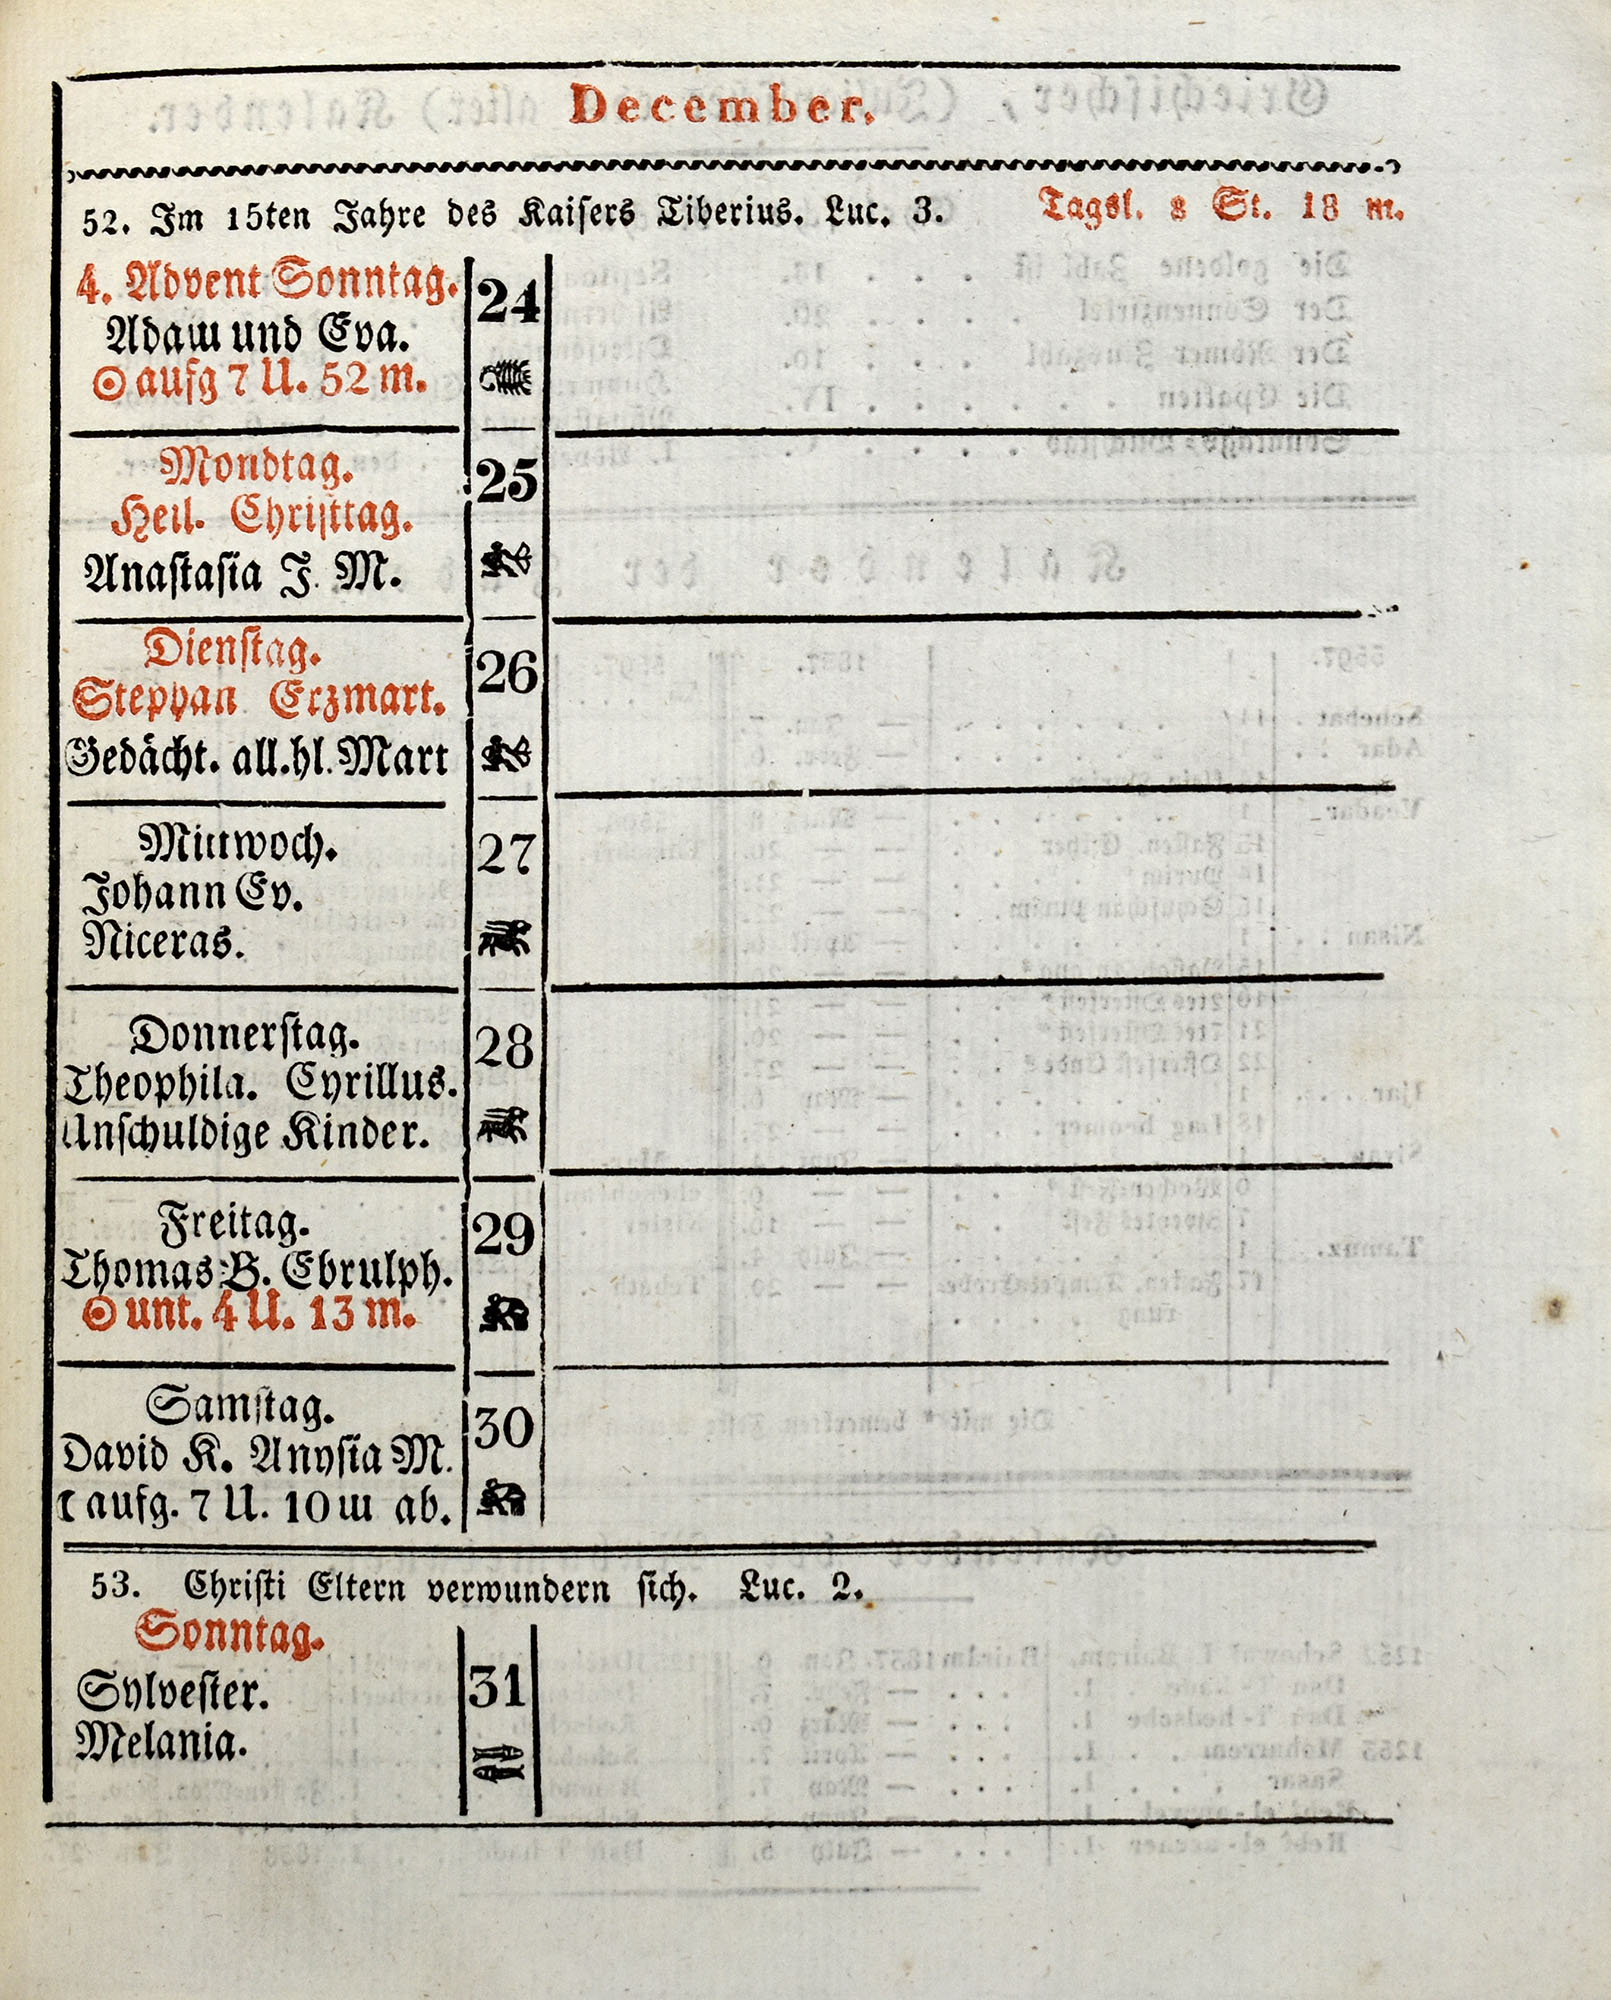 December.
52. Im 15ten Jahre des Kaisers Tiberius. Luc. 3. Tagsl. 8 St. 18 m.
4. Advent Sonntag. 24
Adam und Eva.
☉ aufg 7 U. 52 m.
Mondtag. 25
Heil. Christtag.
Anastasia J. M.
Dienstag. 26
Stephan Erzmart.
Gedächt. all. hl. Mart
Mittwoch. 27
Johann Ev.
Niceras.
Donnerstag. 28
Theophila. Cyrillus.
Unschuldige Kinder.
Freitag. 29
Thomas B. Ebrulph.
☉ unt. 4 U. 13 m.
Samstag. 30
David K. Anysia M.
aufg. 7 U. 10 m ab.
53. Christi Eltern verwundern sich. Luc. 2.
Sonntag. 31
Sylvester.
Melania.